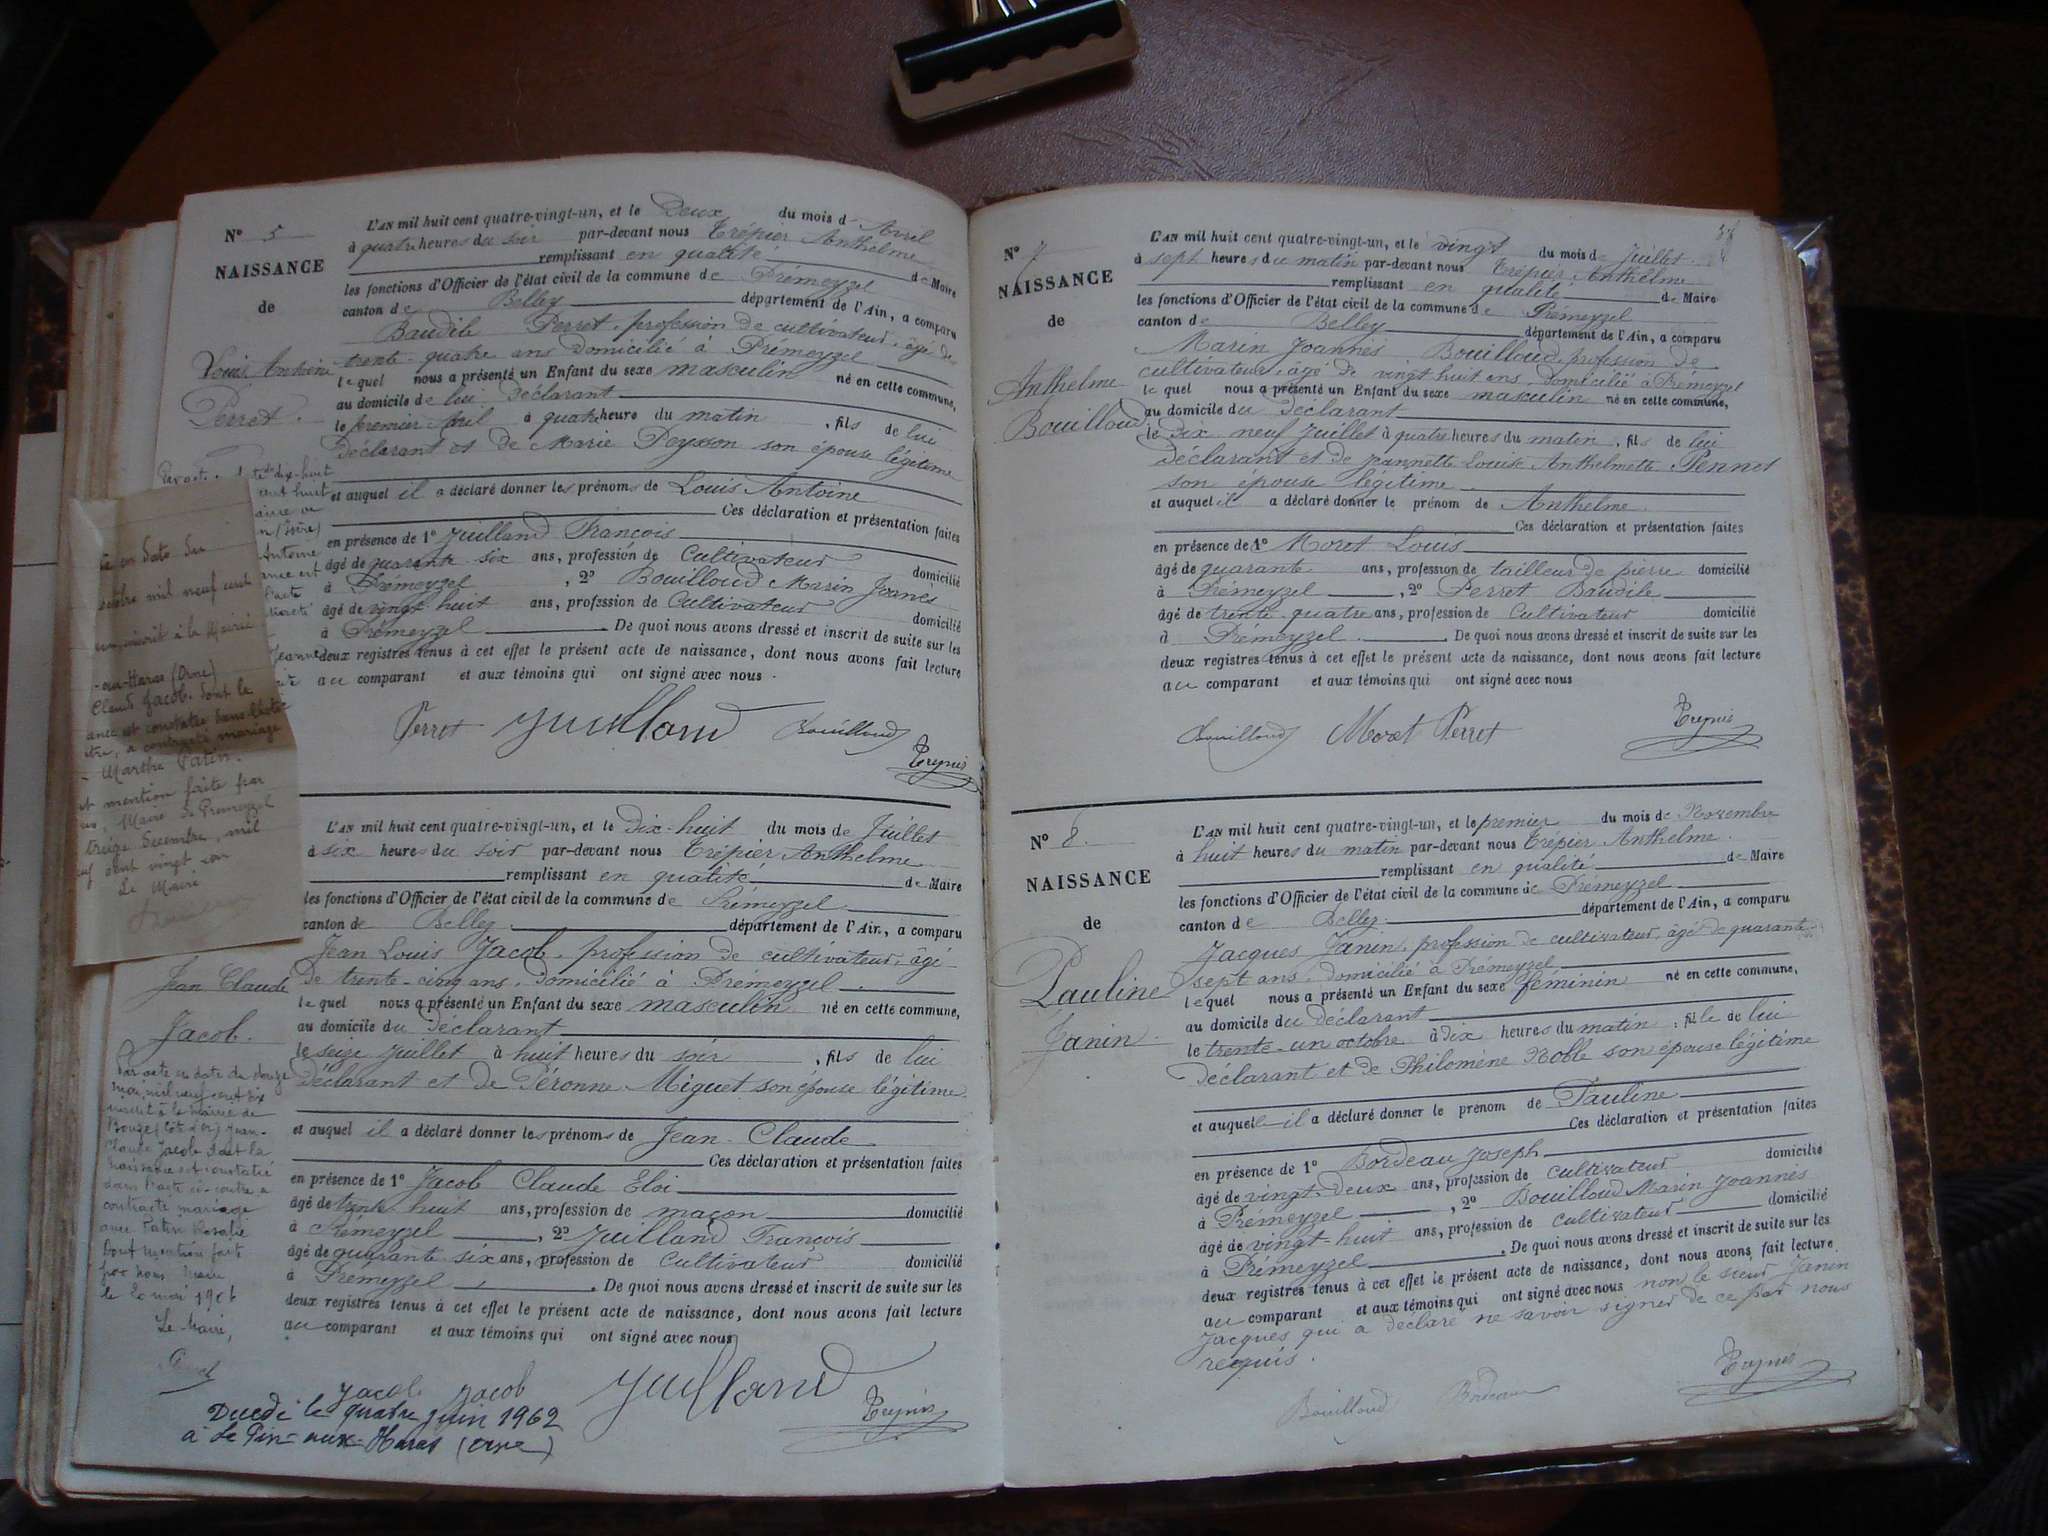 N° 5
NAISSANCE
de
Louis Antoine
Perret.
L'AN mil huit cent quatre-vingt-un, et le Deux du mois d'Avril
à quatre heures du soir par-devant nous Trépier Anthelme
remplissant en qualité de Maire
les fonctions d'Officier de l'état civil de la commune de Prémeyzel
canton de Belley département de l'Ain, a comparu
Baudile Perret, profession de cultivateur, âgé de
trente-quatre ans domicilié à Prémeyzel
lequel nous a présenté un Enfant du sexe masculin né en cette commune,
au domicile de lui Déclarant
le premier Avril à quatre heure du matin, fils de lui
Déclarant et de Marie Peysson son épouse légitime
et auquel il a déclaré donner les prénoms de Louis Antoine
Ces déclaration et présentation faites
en présence de 1° Juilland François
âgé de quarante-six ans, profession de Cultivateur domicilié
à Prémeyzel, 2° Bouilloud Marin Joanès
âgé de vingt huit ans, profession de Cultivateur domicilié
à Prémeyzel. De quoi nous avons dressé et inscrit de suite sur les
deux registres tenus à cet effet le présent acte de naissance, dont nous avons fait lecture
au comparant et aux témoins qui ont signé avec nous.
Perret Juilland Bouilloud
Trepier
dix-huit
huit
(Isère)
Antoine
est
l'acte
Jeanne
en date du
mil neuf cent
inscrit à la Mairie
-au-Haras (Orne)
Claude Jacob. dont le
est constatée dans l'acte
a contracté mariage
Marthe Patin.
mention faite par
Maire de Premeyzel
treize Decembre, mil
cent vingt
Le Maire
Jean Claude
Jacob.
L'AN mil huit cent quatre-vingt-un, et le Dix-huit du mois de Juillet
à six heures du soir par-devant nous Trépier Anthelme
remplissant en qualité de Maire
les fonctions d'Officier de l'état civil de la commune de Prémeyzel
canton de Belley département de l'Ain, a comparu
Jean Louis Jacob, profession de cultivateur, âgé
de trente-cinq ans, domicilié à Prémeyzel
lequel nous a présenté un Enfant du sexe masculin né en cette commune,
au domicile du Déclarant
le seize Juillet à huit heures du soir, fils de lui
Déclarant et de Péronne Miguet son épouse légitime.
et auquel il a déclaré donner les prénoms de Jean-Claude
Ces déclaration et présentation faites
en présence de 1° Jacob Claude Eloi
âgé de trente huit ans, profession de maçon domicilié
à Prémeyzel, 2° Juilland François
âgé de quarante six ans, profession de Cultivateur domicilié
à Prémeyzel. De quoi nous avons dressé et inscrit de suite sur les
deux registres tenus à cet effet le présent acte de naissance, dont nous avons fait lecture
au comparant et aux témoins qui ont signé avec nous
Par acte en date du douze
mai mil neuf cent six
inscrit à la mairie de
Rouge (côte d'or) Jean-
Claude Jacob dont la
naissance est constatée
dans l'acte ci-contre a
contracté mariage
avec Patin Rosalie
Dont mention faite
par nous Maire
le 20 mai 1906
Le Maire,
Jacob Jacob Juilland
Trepier
Decedé le quatre juin 1962
à Le Pin-aux-Haras (Orne)
N° 7
NAISSANCE
de
Anthelme
Bouilloud
L'AN mil huit cent quatre-vingt-un, et le vingt du mois de Juillet
à sept heures du matin par-devant nous Trépier Anthelme
remplissant en qualité de Maire
les fonctions d'Officier de l'état civil de la commune de Prémeyzel
canton de Belley département de l'Ain, a comparu
Marin Joannès Bouilloud, profession de
cultivateur, âgé de vingt huit ans, domicilié à Prémeyzel
lequel nous a présenté un Enfant du sexe masculin né en cette commune,
au domicile du Déclarant
le Dix neuf Juillet à quatre heures du matin, fils de lui
Déclarant et de Jeannette Louise Anthelmette Pennet
son épouse légitime
et auquel il a déclaré donner le prénom de Anthelme
Ces déclaration et présentation faites
en présence de 1° Moret Louis
âgé de quarante ans, profession de tailleur de pierre domicilié
à Prémeyzel, 2° Perret Baudile
âgé de trente quatre ans, profession de Cultivateur domicilié
à Prémeyzel. De quoi nous avons dressé et inscrit de suite sur les
deux registres tenus à cet effet le présent acte de naissance, dont nous avons fait lecture
au comparant et aux témoins qui ont signé avec nous
Bouilloud Moret Perret
Trepier
N° 8.
NAISSANCE
de
Pauline
Janin.
L'AN mil huit cent quatre-vingt-un, et le premier du mois de Novembre
à huit heures du matin par-devant nous Trépier Anthelme
remplissant en qualité de Maire
les fonctions d'Officier de l'état civil de la commune de Prémeyzel
canton de Belley département de l'Ain, a comparu
Jacques Janin, profession de cultivateur, âgé de quarante-
sept ans, domicilié à Prémeyzel
lequel nous a présenté un Enfant du sexe féminin né en cette commune,
au domicile du Déclarant
le trente-un octobre à dix heures du matin, fille de lui
Déclarant et de Philomène Noble son épouse légitime
et auquelle il a déclaré donner le prénom de Pauline
Ces déclaration et présentation faites
en présence de 1° Bordeau Joseph
âgé de vingt-deux ans, profession de cultivateur domicilié
à Prémeyzel, 2° Bouilloud Marin Joannès
âgé de vingt-huit ans, profession de cultivateur domicilié
à Prémeyzel. De quoi nous avons dressé et inscrit de suite sur les
deux registres tenus à cet effet le présent acte de naissance, dont nous avons fait lecture
au comparant et aux témoins qui ont signé avec nous non le sieur Janin
Jacques qui a déclaré ne savoir signer de ce par nous
requis.
Bouilloud Bordeau
Trepier